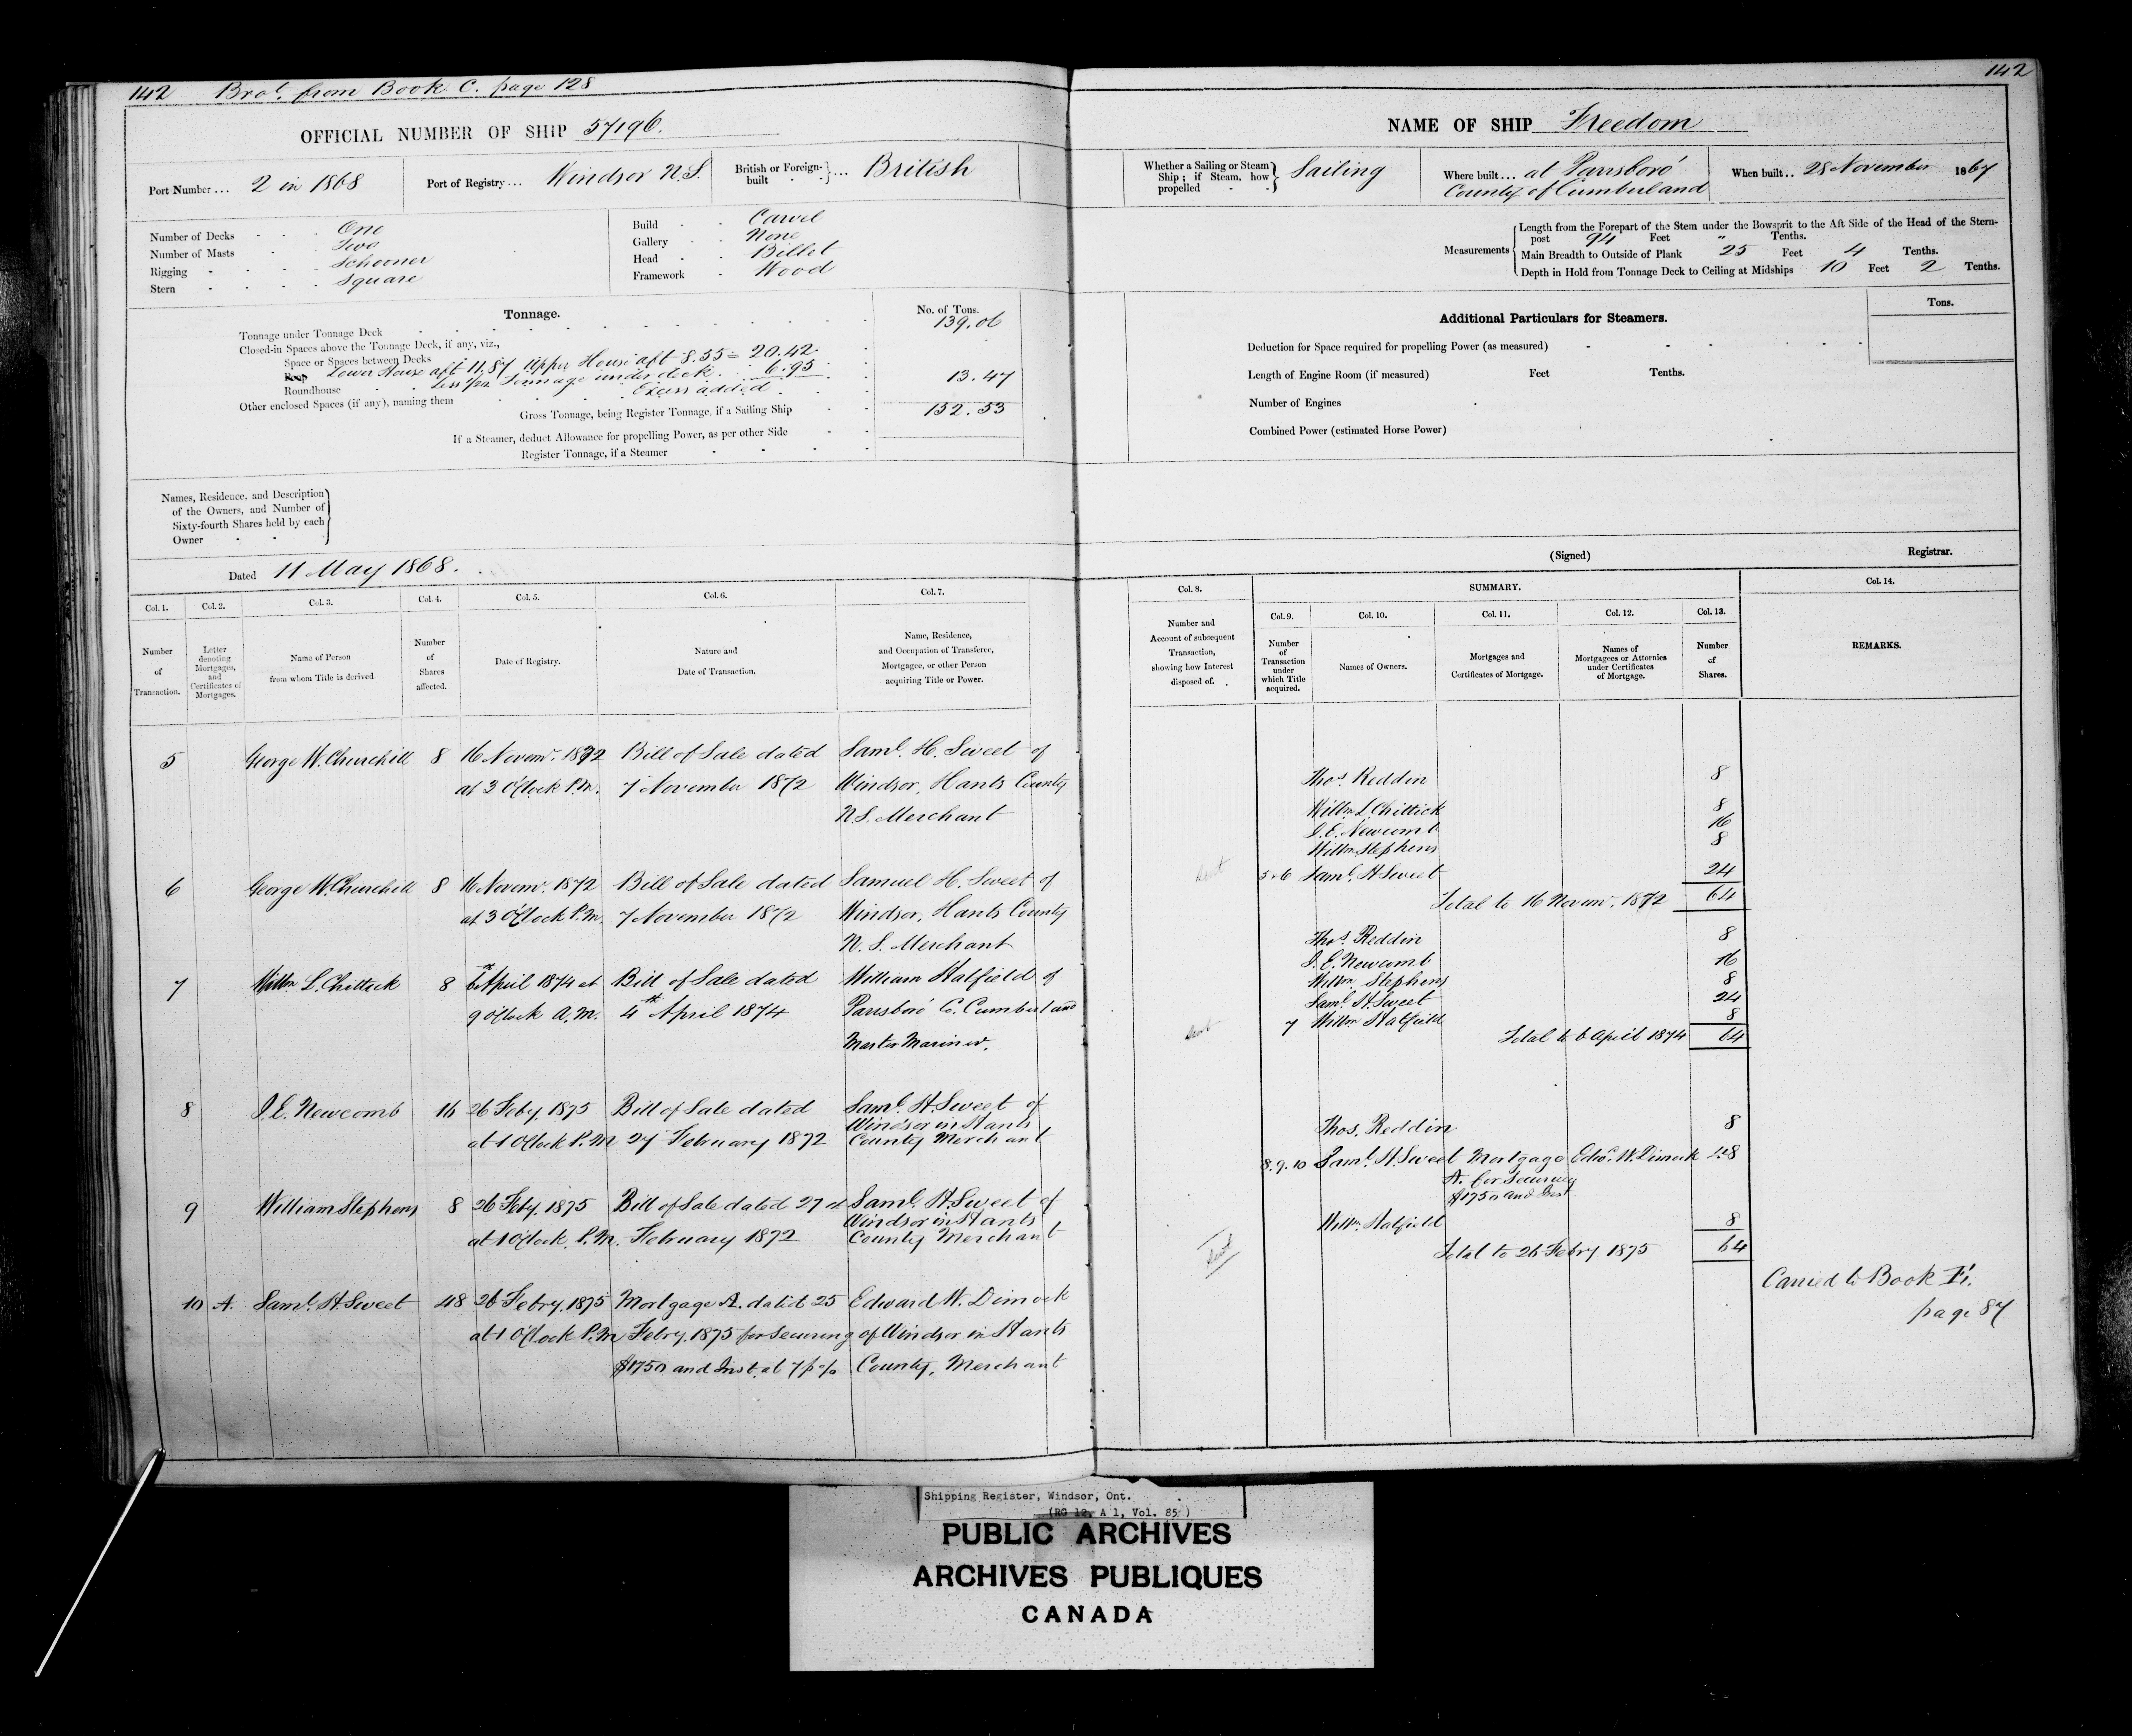 142 Brot. from Book C. page 128
OFFICIAL NUMBER OF SHIP 57196.
Port Number ... 2 in 1868
Port of Registry ... Windsor N.S.
British or Foreign-built ... British
Number of Decks One
Number of Masts Two
Rigging Schooner
Stern Square
Build Carvel
Gallery None
Head Billet
Framework Wood
Tonnage.
No. of Tons.
Tonnage under Tonnage Deck 139.06
Closed-in Spaces above the Tonnage Deck, if any, viz.,
Space or Spaces between Decks
Poop Lower House aft 11.87 Upper House aft 8.55 = 20.42
Roundhouse Less pr Tonnage under deck 6.95
Other enclosed Spaces (if any), naming them Excess added 13.47
Gross Tonnage, being Register Tonnage, if a Sailing Ship 152.53
If a Steamer, deduct Allowance for propelling Power, as per other Side
Register Tonnage, if a Steamer
Names, Residence, and Description
of the Owners, and Number of
Sixty-fourth Shares held by each
Owner
Dated 11 May 1868.
Col. 1. Col. 2. Col. 3. Col. 4. Col. 5. Col. 6. Col. 7.
Number of Transaction.
Letter denoting Mortgages, and Certificates of Mortgages.
Name of Person from whom Title is derived
Number of Shares affected.
Date of Registry.
Nature and Date of Transaction.
Name, Residence, and Occupation of Transferee, Mortgagee, or other Person acquiring Title or Power.
5 George W. Churchill 8 16 Novemr. 1872 Bill of Sale dated Saml. H. Sweet of
at 3 O'Clock P.M. 7 November 1872 Windsor, Hants County
N.S. Merchant
6 George W. Churchill 8 16 Novemr. 1872 Bill of Sale dated Samuel H. Sweet of
at 3 O'Clock P.M. 7 November 1872 Windsor, Hants County
N.S. Merchant
7 Willm L. Chittick 8 6th April 1874 at Bill of Sale dated William Hatfield of
9 o'Clock A.M. 4th April 1874 Parrsboro' Co. Cumberland
Master Mariner.
8 J. E. Newcomb 16 26 Feby. 1875 Bill of Sale dated Saml. H. Sweet of
Windsor in Hants
at 1 O'Clock P.M 27 February 1872 County Merchant
9 William Stephens 8 26 Feby. 1875 Bill of Sale dated 27 Saml. H. Sweet of
Windsor in Hants
at 1 O'Clock P.M. February 1872 County Merchant
10 A. Saml. H. Sweet 48 26 Febry. 1875 Mortgage A. dated 25 Edward W. Dimock
at 1 O'Clock P.M Febry. 1875 for Securing of Windsor in Hants
$1750 and Inst. at 7 p % County, Merchant
142
NAME OF SHIP Freedom
Whether a Sailing or Steam Ship; if Steam, how propelled Sailing
Where built ... at Parrsboro' County of Cumberland
When built .. 28 November 1867
Measurements
Length from the Forepart of the Stem under the Bowsprit to the Aft Side of the Head of the Stern-
post 94 Feet " Tenths.
Main Breadth to Outside of Plank 25 Feet 4 Tenths.
Depth in Hold from Tonnage Deck to Ceiling at Midships 10 Feet 2 Tenths.
Additional Particulars for Steamers.
Tons.
Deduction for Space required for propelling Power (as measured)
Length of Engine Room (if measured) Feet Tenths.
Number of Engines
Combined Power (estimated Horse Power)
(Signed) Registrar.
Col. 8. SUMMARY. Col. 14.
Col. 9. Col. 10. Col. 11. Col. 12. Col. 13.
Number and Account of subsequent Transaction, showing how Interest disposed of.
Number of Transaction under which Title acquired.
Names of Owners.
Mortgages and Certificates of Mortgage.
Names of Mortgagees or Attornies under Certificates of Mortgage.
Number of Shares.
REMARKS.
Thos. Reddin 8
Willm L. Chittick 8
J. E. Newcomb 16
Willm Stephens 8
5 & 6 Saml. H Sweet 24
Total to 16 Novemr. 1872 64
Thos. Reddin 8
J. E. Newcomb 16
Willm Stephens 8
Saml. H. Sweet 24
7 Willm Hatfield 8
Total to 6 April 1874 64
Thos. Reddin 8
8. 9. 10 Saml. H. Sweet Mortgage Edwd. W. Dimock 48
A. for Securing
$1750 and Inst
Willm. Hatfield 8
Total to 26 Febry 1875 64
Carried to Book
page 87
Shipping Register, Windsor, Ont.
(RG 12, A 1, Vol. 85)
PUBLIC ARCHIVES
ARCHIVES PUBLIQUES
CANADA